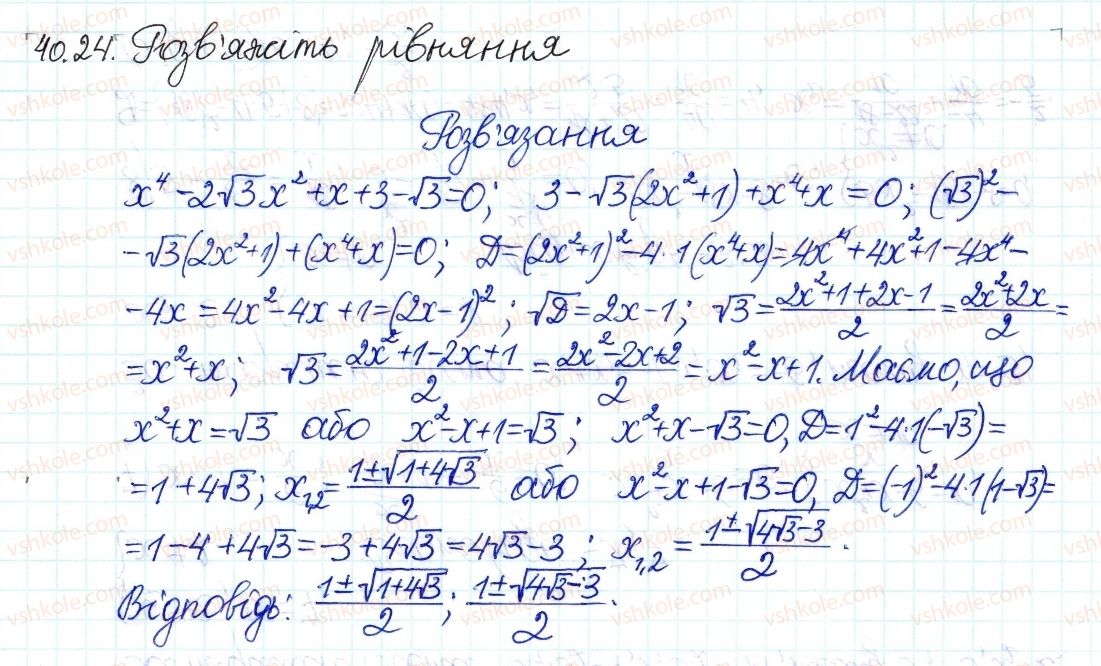 40.24. Розв'яжіть рівняння
Розв'язання
x⁴ - 2√3x² + x + 3 - √3 = 0; 3 - √3(2x² + 1) + x⁴ + x = 0; (√3)² -
- √3(2x² + 1) + (x⁴ + x) = 0; D = (2x² + 1)² - 4·1(x⁴ + x) = 4x⁴ + 4x² + 1 - 4x⁴ -
- 4x = 4x² - 4x + 1 = (2x - 1)²; √D = 2x - 1; √3 = (2x² + 1 + 2x - 1)/2 = (2x² + 2x)/2 =
= x² + x; √3 = (2x² + 1 - 2x + 1)/2 = (2x² - 2x + 2)/2 = x² - x + 1. Маємо, що
x² + x = √3 або x² - x + 1 = √3; x² + x - √3 = 0, D = 1² - 4·1(-√3) =
= 1 + 4√3; x₁,₂ = (1 ± √(1 + 4√3))/2 або x² - x + 1 - √3 = 0, D = (-1)² - 4·1(1 - √3) =
= 1 - 4 + 4√3 = -3 + 4√3 = 4√3 - 3; x₁,₂ = (1 ± √(4√3 - 3))/2.
Відповідь: (1 ± √(1 + 4√3))/2; (1 ± √(4√3 - 3))/2.